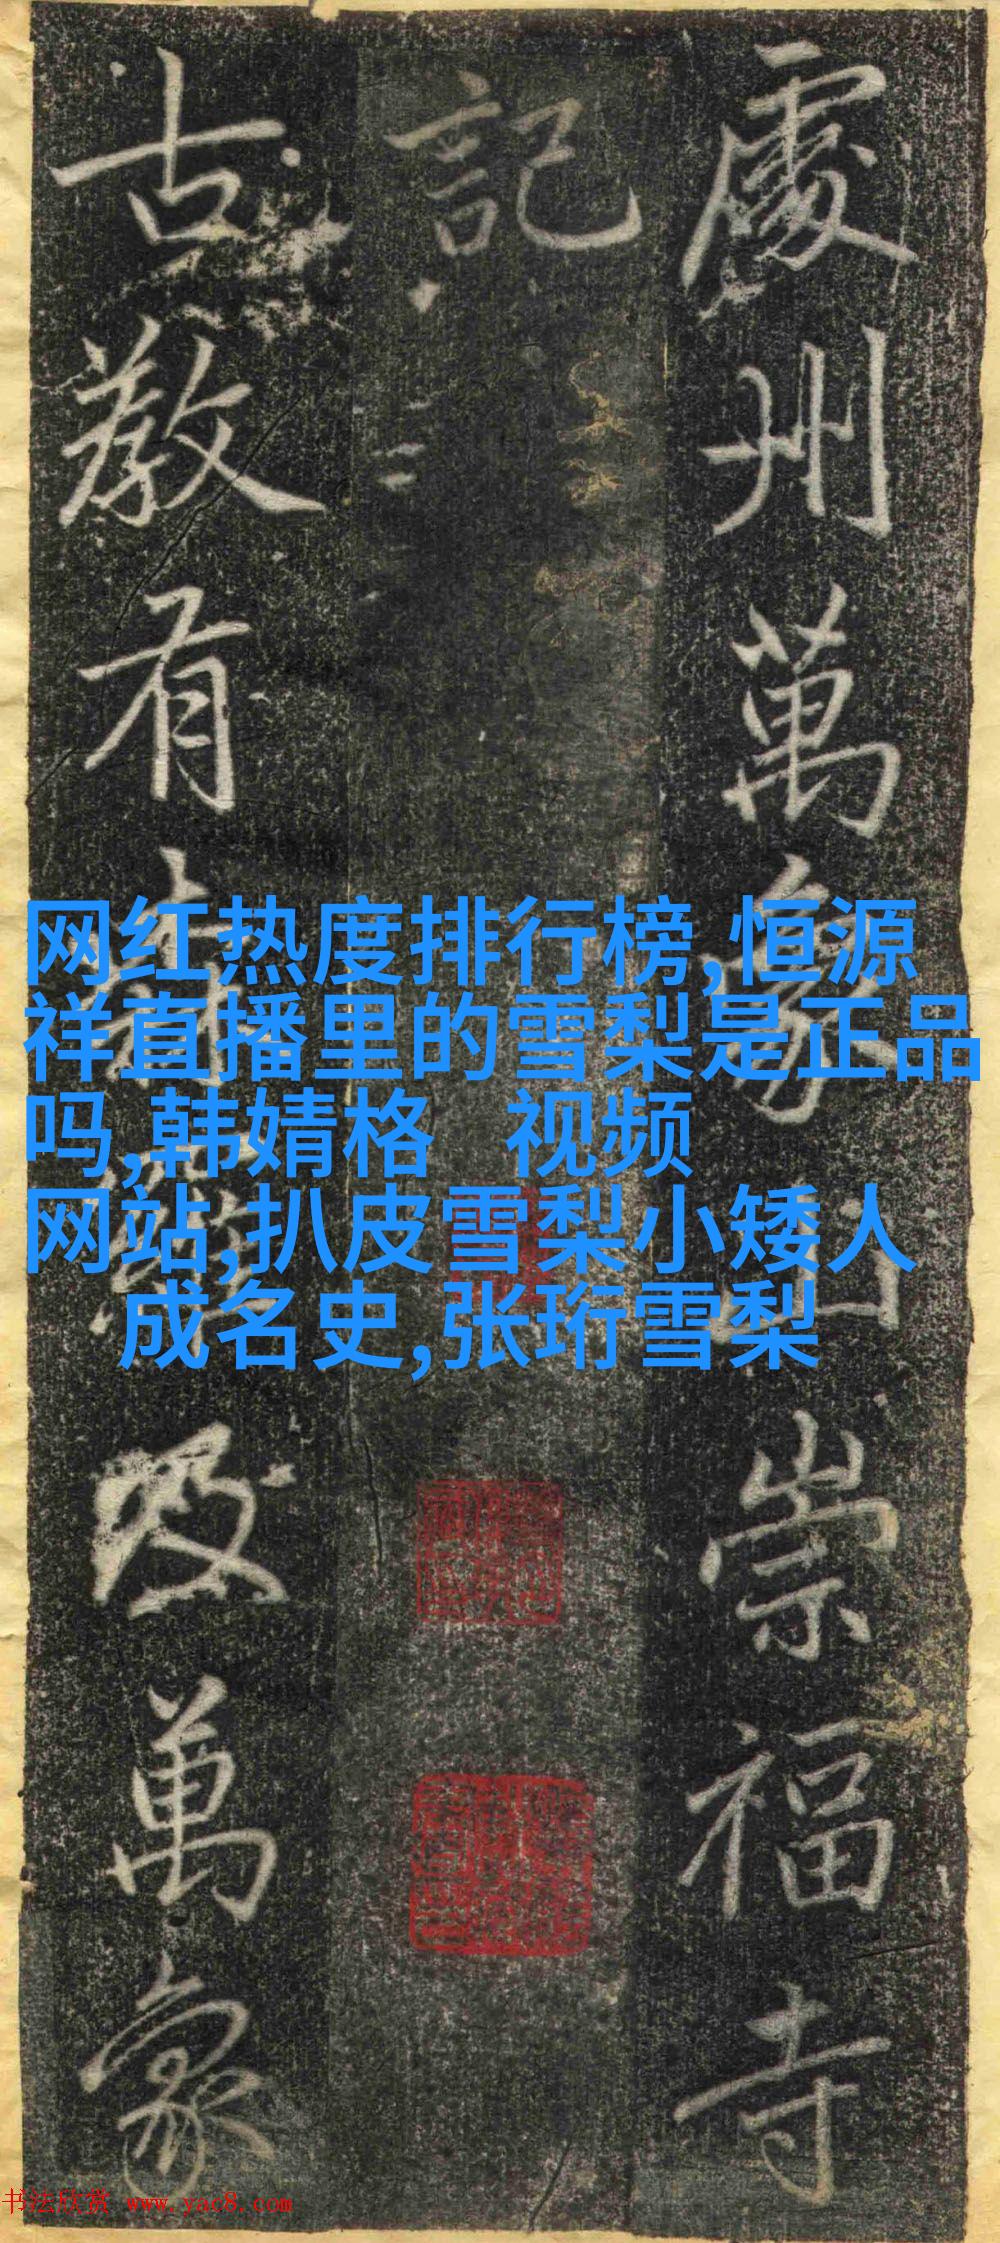 處州萬象山崇福寺
記
古教有
及萬象
网红热度排行榜,恒源
祥直播里的雪梨是正品
吗,韩婧格 视频
网站,扒皮雪梨小矮人
成名史,张珩雪梨
书法欣赏 www.yac8.com